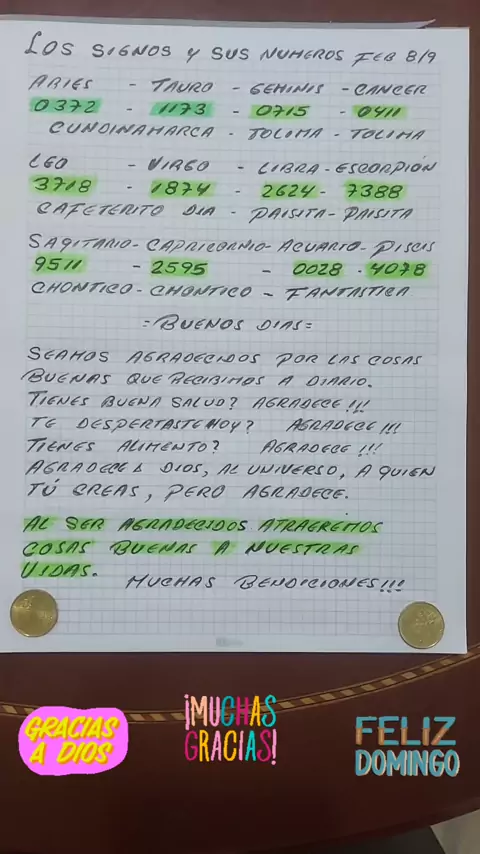 LOS SIGNOS Y SUS NUMEROS FEB 8/9
ARIES - TAURO - GEMINIS - CANCER
0372 - 1173 - 0715 - 0411
CUNDINAMARCA - TOLIMA - TOLIMA
LEO - VIRGO - LIBRA - ESCORPIÓN
3718 - 1874 - 2624 - 7388
CAFETERITO DIA - PAISITA - PAISITA
SAGITARIO - CAPRICORNIO - ACUARIO - PISCIS
9511 - 2595 - 0028 - 4078
CHONTICO - CHONTICO - FANTASTICA
= BUENOS DIAS =
SEAMOS AGRADECIDOS POR LAS COSAS
BUENAS QUE RECIBIMOS A DIARIO.
TIENES BUENA SALUD? AGRADECE!!!
TE DESPERTASTE HOY? AGRADECE!!!
TIENES ALIMENTO? AGRADECE!!!
AGRADECE A DIOS, AL UNIVERSO, A QUIEN
TÚ CREAS, PERO AGRADECE.
AL SER AGRADECIDOS ATRAEREMOS
COSAS BUENAS A NUESTRAS
VIDAS. MUCHAS BENDICIONES!!!
GRACIAS
A DIOS
¡MUCHAS
GRACIAS!
FELIZ
DOMINGO